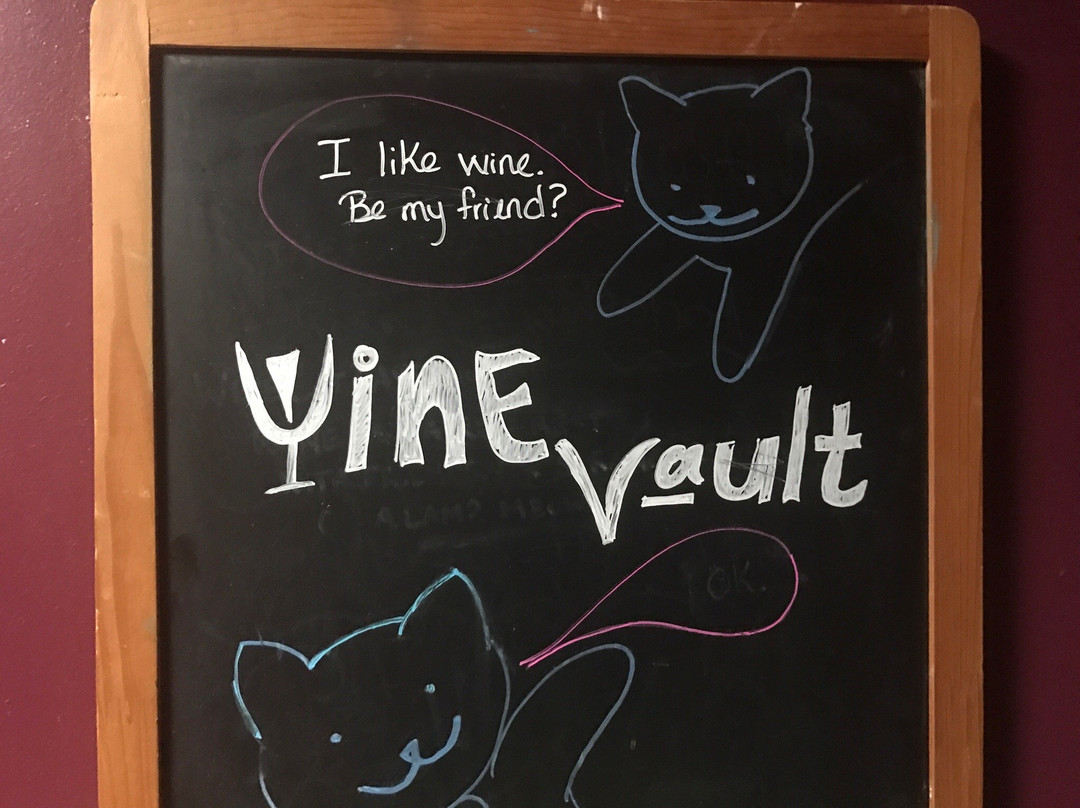 I like wine.
Be my friend?
WinE
Vault
OK.